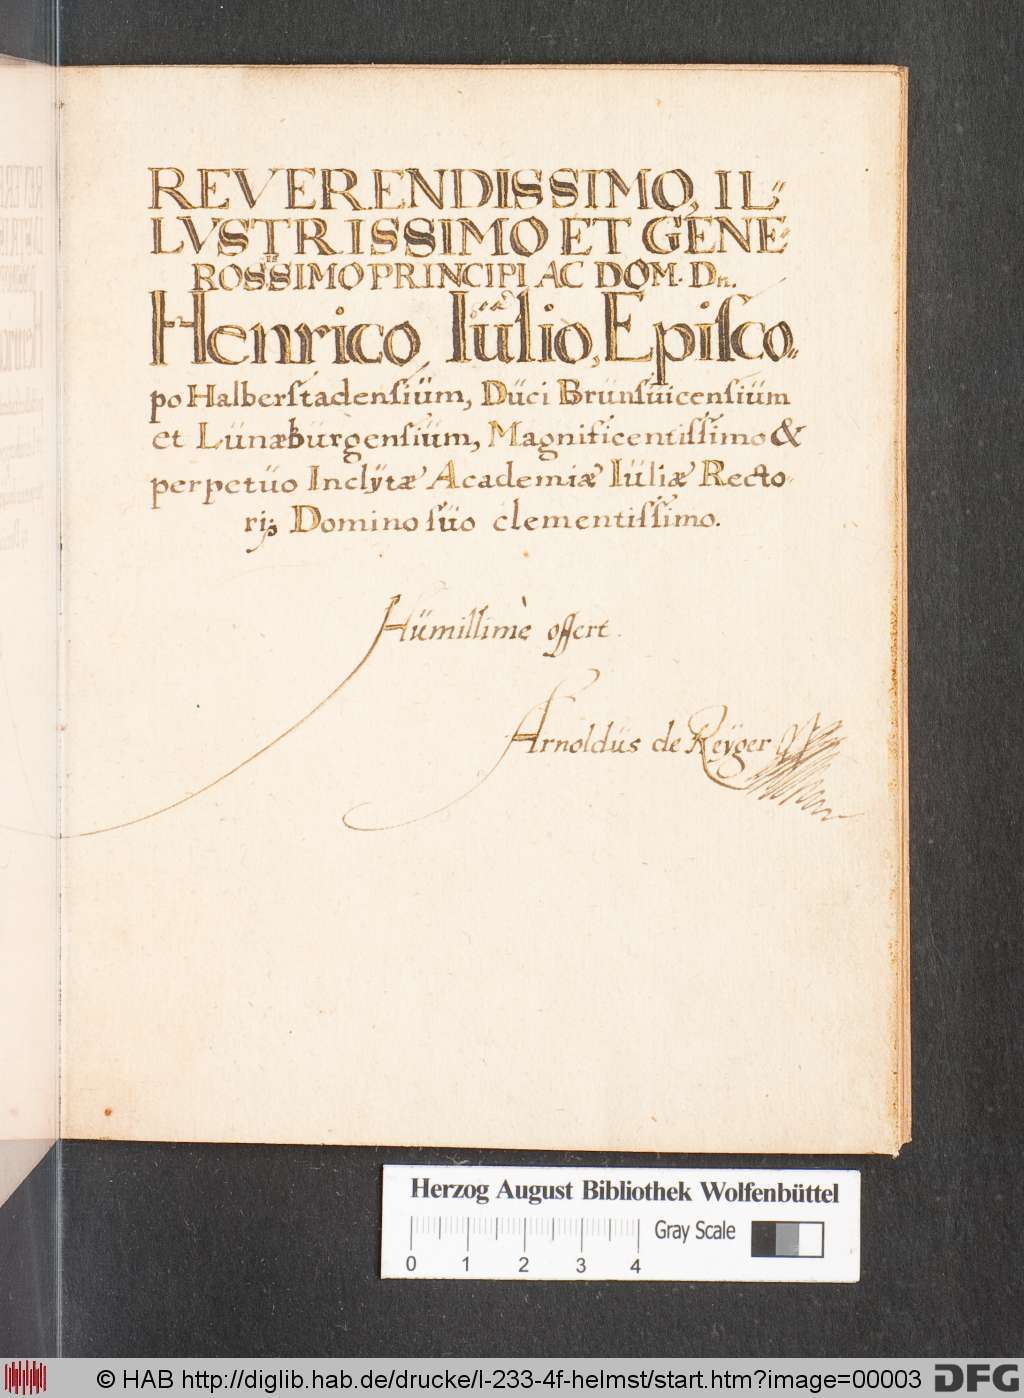 REVERENDISSIMO, IL-
LVSTRISSIMO ET GENE-
ROSSISSIMO PRINCIPI AC DOM. Dn.
Henrico Iulio, Episco-
po Halberstadensium, Duci Brunsuicensium
et Lunæburgensium, Magnificentissimo &
perpetuo Inclytæ Academiæ Iuliæ Recto-
ri, Domino suo clementissimo.
Humillimè offert.
Arnoldus de Reyger
Herzog August Bibliothek Wolfenbüttel
Gray Scale
0 1 2 3 4
© HAB http://diglib.hab.de/drucke/l-233-4f-helmst/start.htm?image=00003
DFG